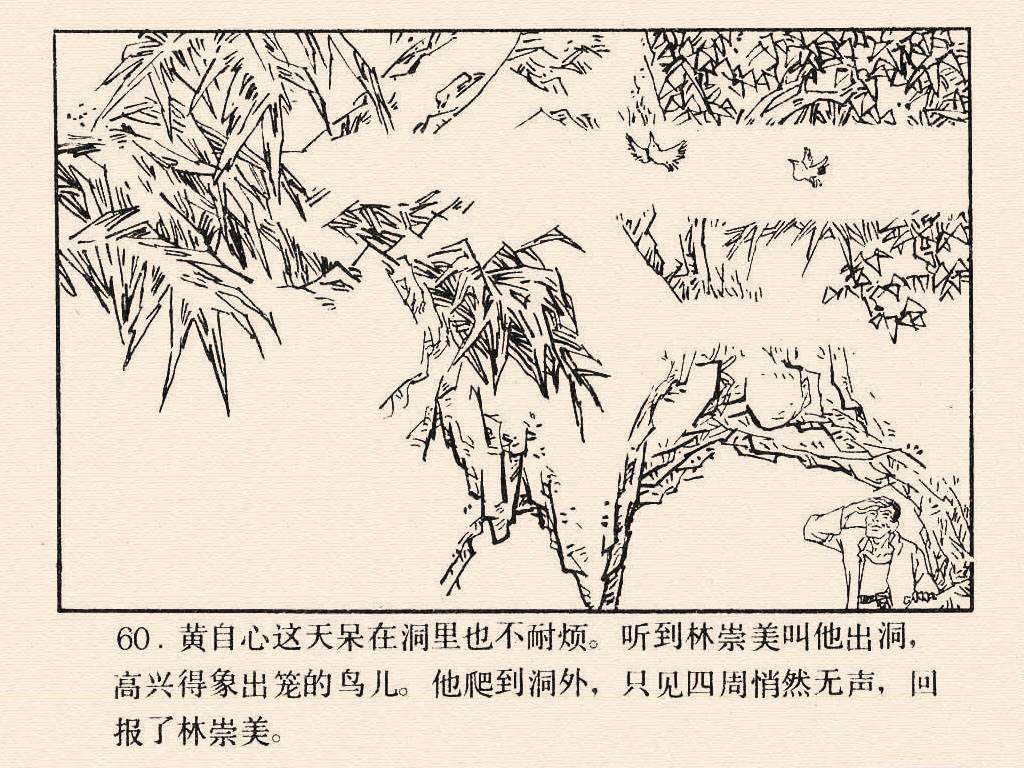 60. 黄自心这天呆在洞里也不耐烦。听到林崇美叫他出洞，
高兴得象出笼的鸟儿。他爬到洞外，只见四周悄然无声，回
报了林崇美。